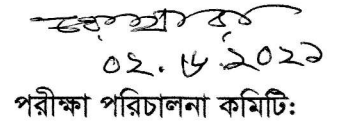 ০২.৮.২০২১
পরীক্ষা পরিচালনা কমিটি: